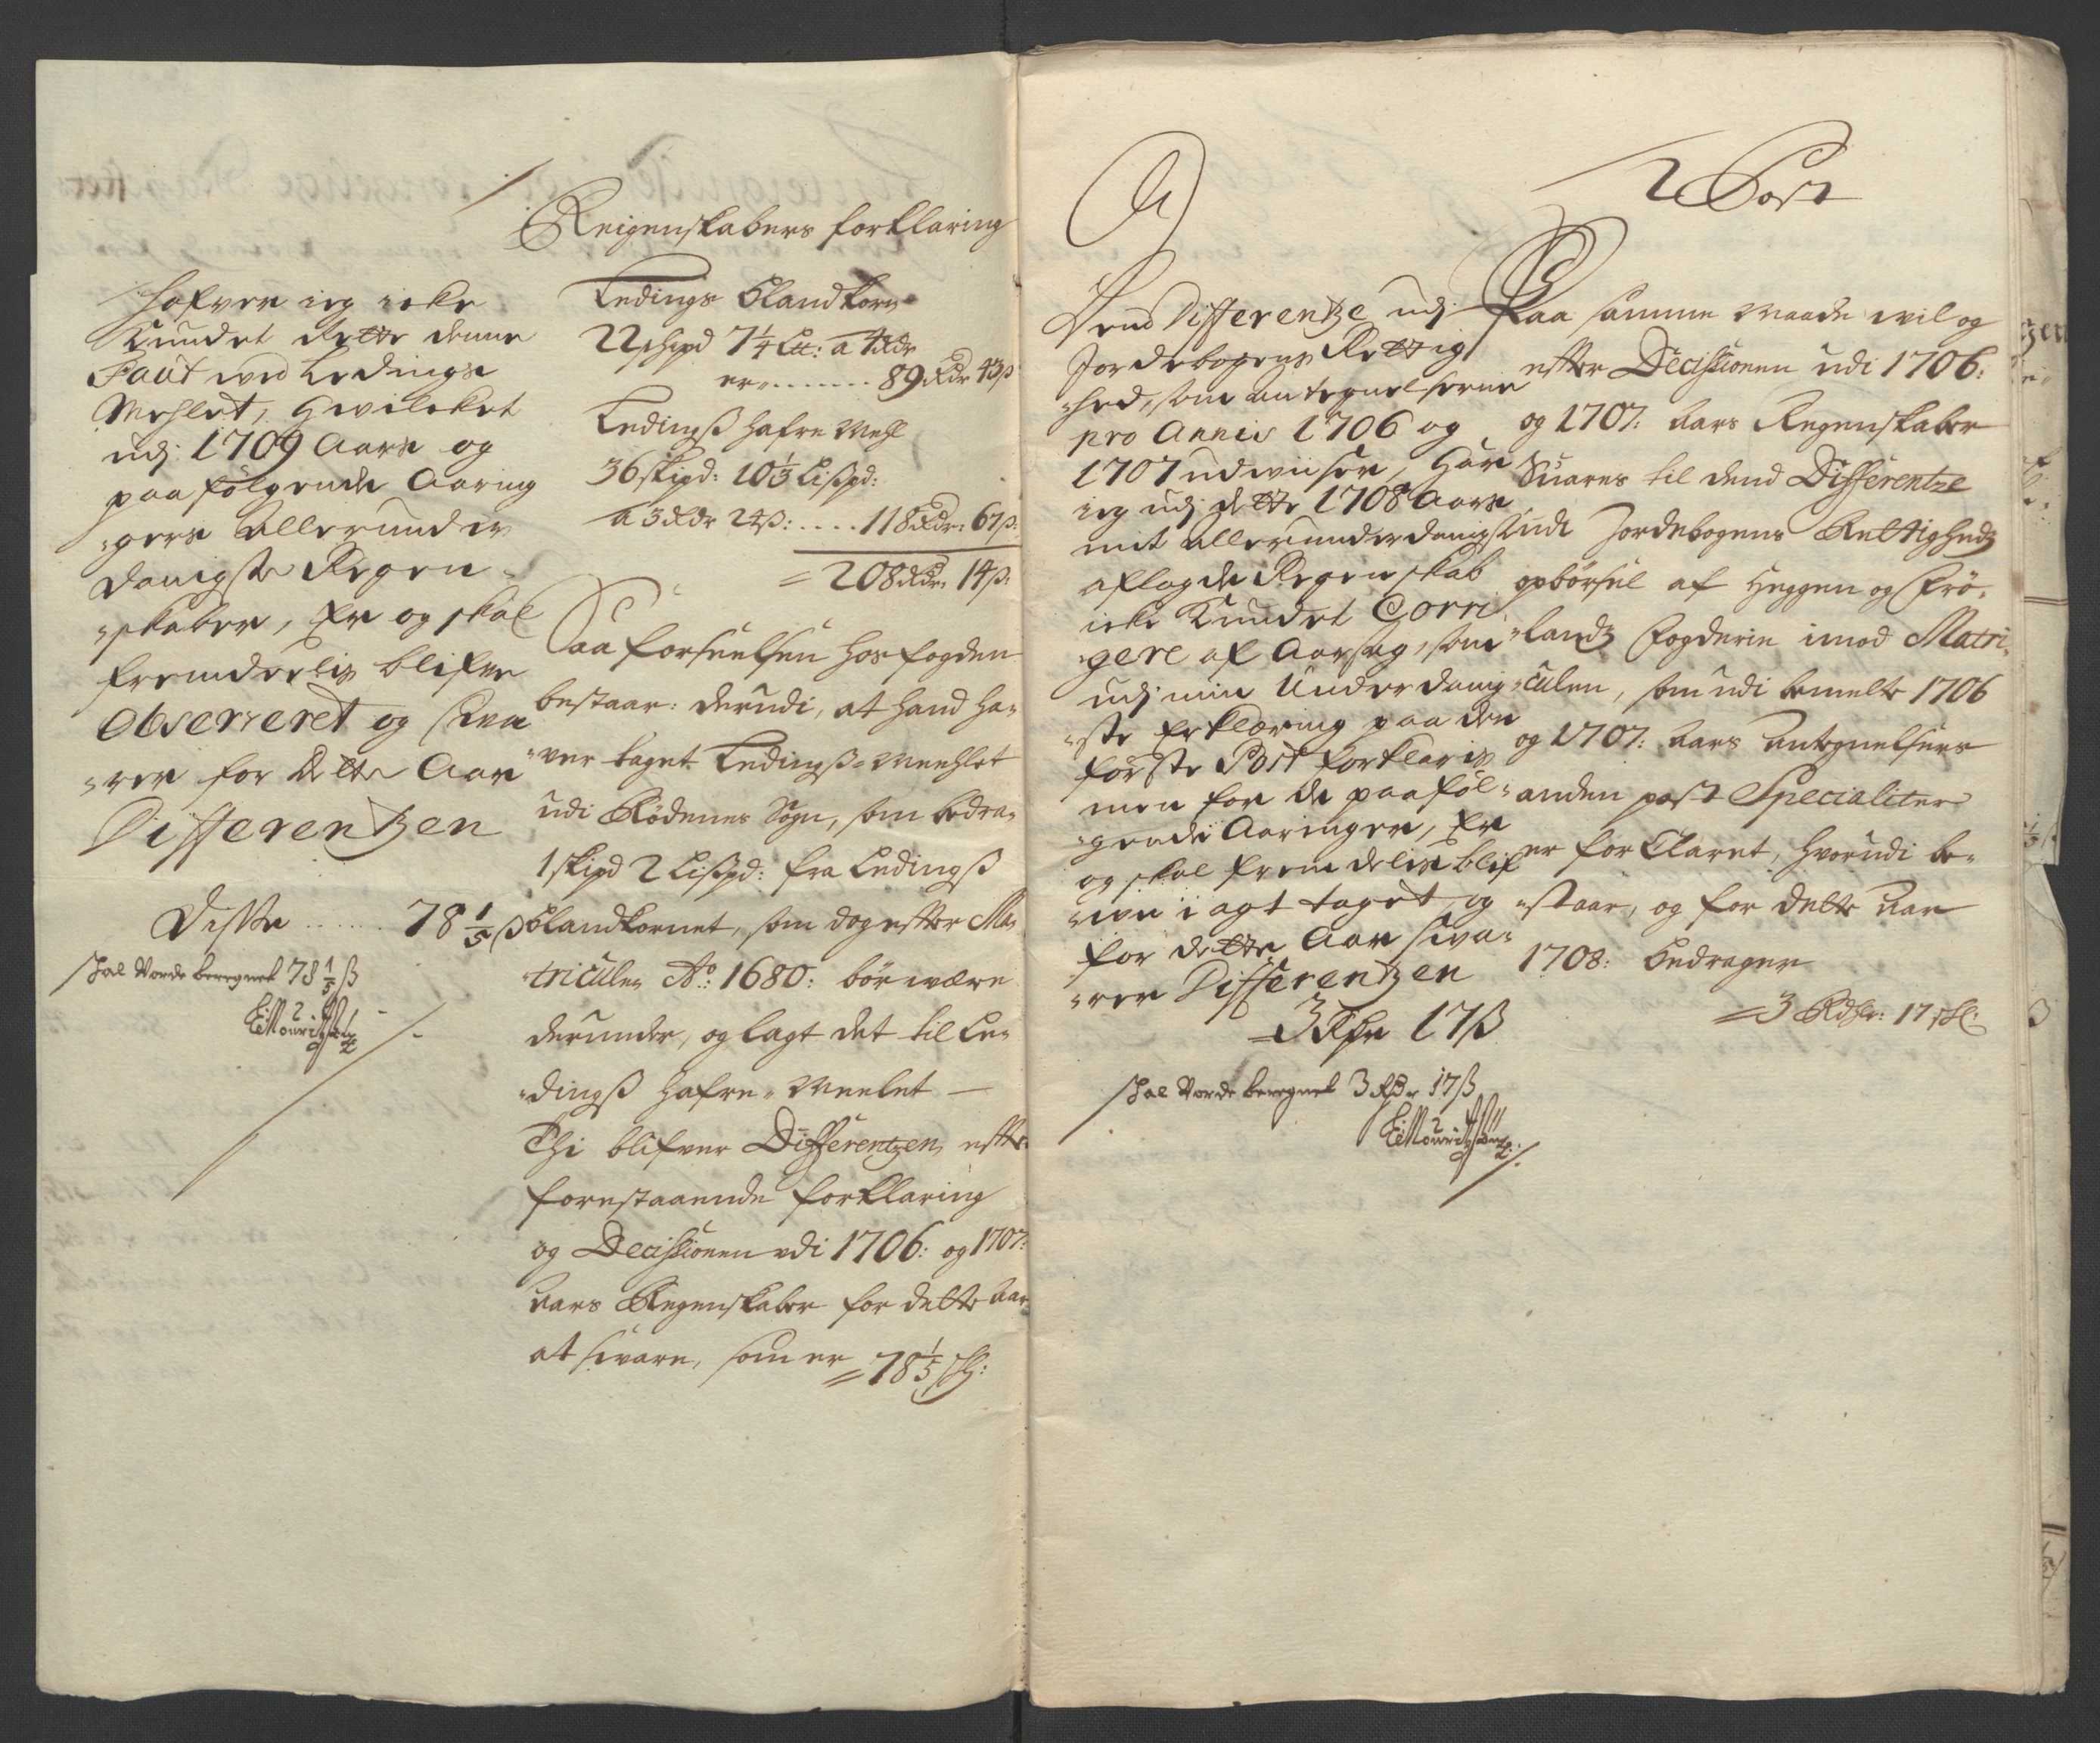 hafver ieg icke
Kundet Rette denne
Faut ved Ledings
Mehlet, hvilcket
udj 1709 Aars og
paafølgende Aaring
gers Allerunder
danigste Regen-
skaber, Er og skal
fremdeelis blifve
Observeret og sva
rer for dette Aar
Differentzen
Disse ...... 78 1/5 ß
skal Vorde beregnet 78 1/5 ß
Reigenskabers forklaring
Ledings blandkorn
22 skipd 7 1/4 L: a 4 Rdr
er ........ 89 Rdr 43 ß
Ledingß hafre Mehl
36 skipd: 10 1/3 Lißpd:
a 3 Rdr 24 ß: ..... 118 Rdr: 67 ß:
= 208 Rdr 14 ß:
Saa forseelsen hos fogden
bestaar: derudi, at hand ha-
ver taget Ledingß-Meehlet
udi Rødenes Sogn, som bedra-
1 skipd 2 Lißpd: fra Ledingß
blandkornet, som dog efter Ma-
triculen Ao: 1680: bør være
derunder, og lagt det til Le-
dingß hafre-Meelet —
Thi blifver Differentzen efter
forestaaende forklaring
og Decissionen udi 1706: og 1707:
aars Regenskaber for dette aar
at svare, som er = 78 1/5 ßl:
Dend Differentze udj
Jordebogens Rettig
hed, som antegnelserne
pro Annis 1706 og
1707 udviiser, har
ieg udj dette 1708 Aars
mit allerunderdanigst
aflagde Regenskab
icke Kundet Corri-
gere af Aarsag, som
udj min Underdanig-
ste Erklæring paa den
første Post forklaris
men for de paaføl-
gende Aaringer, Er
og skal fremdelis blif
ven i agt taget, og
for dette Aar sva-
rer Differentzen
= 3 Rdr 17 ß
skal Vorde beregnet 3 Rdr 17 ß
2 Post
Paa samme Maade vil og
efter Decissionen udi 1706:
og 1707: aars Regenskaber
Svares til dend Differentze
udi Jordebogens Rettigheds
opbørsel af Heggen og Frø-
lands Fogderie imod Matri-
culen, som udi bemelte 1706
og 1707: aars Antegnelsers
anden post Specialiter
er forklaret, hvorudi be-
staar, og for dette aar
1708: bedrager
= 3 Rdlr: 17 ßl: